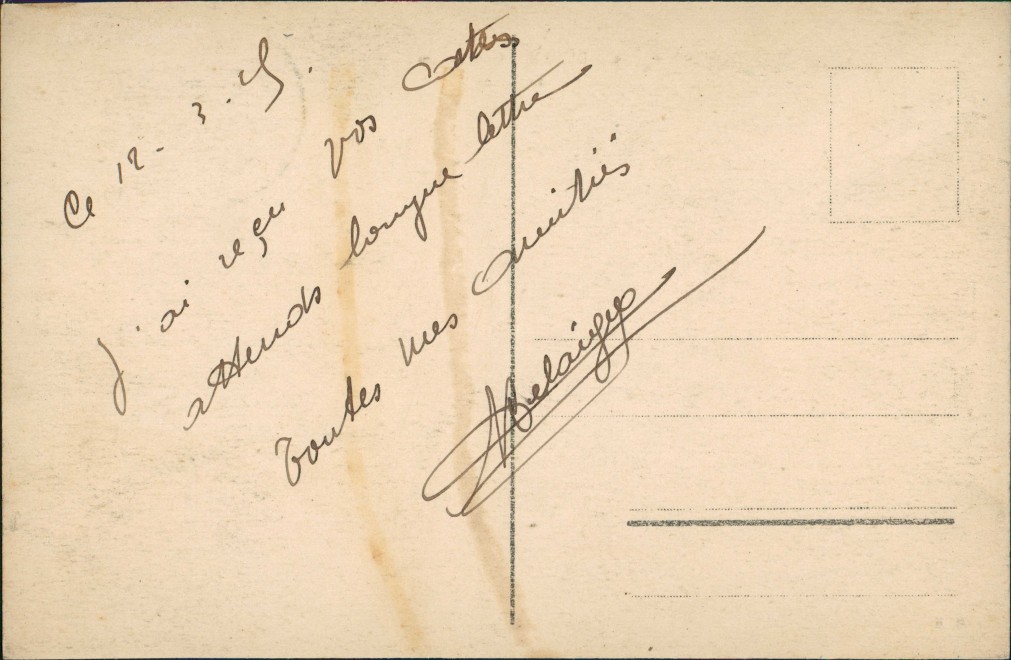 Ce 12 - 3 - 25.
J'ai reçu vos cartes
attends longue lettre
toutes mes amitiés